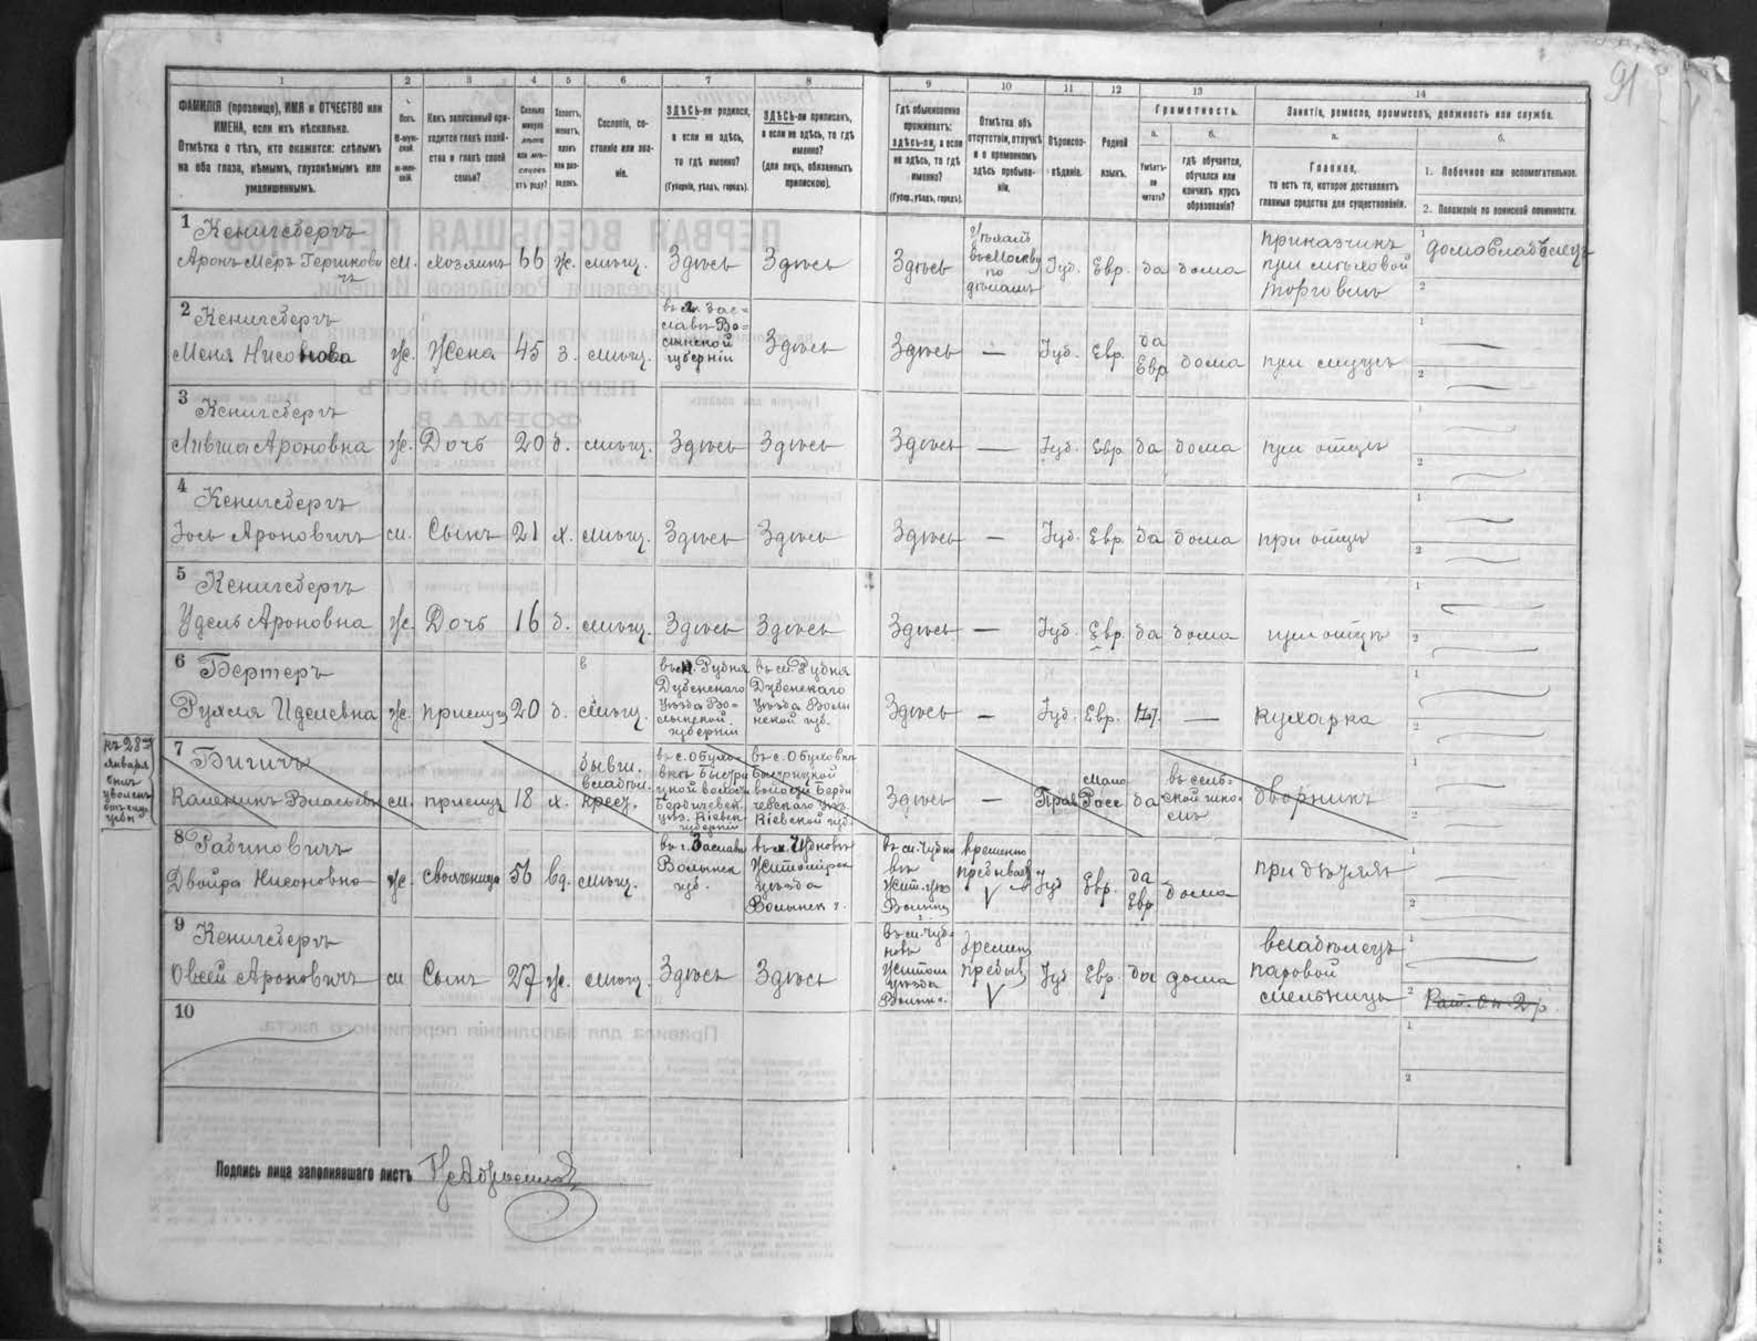 91
1 2 3 4 5 6 7 8 9 10 11 12 13 14
ФАМИЛІЯ (прозвище), ИМЯ и ОТЧЕСТВО или
ИМЕНА, если ихъ нѣсколько.
Отмѣтка о тѣхъ, кто окажется: слѣпымъ
на оба глаза, нѣмымъ, глухонѣмымъ или
умалишеннымъ.
Полъ.
М-муж-
ской.
Ж-жен-
скій.
Какъ записанный при-
ходится главѣ хозяй-
ства и главѣ своей
семьи?
Сколько
минуло
лѣтъ
или мѣ-
сяцевъ
отъ роду?
Холостъ,
женатъ,
вдовъ
или раз-
веденъ.
Сословіе, со-
стояніе или зва-
ніе.
ЗДѢСЬ-ли родился,
а если не здѣсь,
то гдѣ именно?
(Губернія, уѣздъ, городъ).
ЗДѢСЬ-ли приписанъ,
а если не здѣсь, то гдѣ
именно?
(для лицъ, обязанныхъ
припискою).
Гдѣ обыкновенно
проживаетъ:
здѣсь-ли, а если
не здѣсь, то гдѣ
именно?
(Губер., уѣздъ, городъ).
Отмѣтка объ
отсутствіи, отлучкѣ
и о временномъ
здѣсь пребыва-
ніи.
Вѣроиспо-
вѣданіе.
Родной
языкъ.
Грамотность.
а.
Умѣетъ-
ли
читать?
б.
гдѣ обучается,
обучался или
кончилъ курсъ
образованія?
Занятіе, ремесло, промыселъ, должность или служба.
а.
Главное,
то есть то, которое доставляетъ
главныя средства для существованія.
б.
1. Побочное или вспомогательное.
2. Положеніе по воинской повинности.
1 Кенигсбергъ
Аронъ Меръ Гершкови
чъ
м. хозяинъ 66 ж. мѣщ. Здѣсь Здѣсь Здѣсь
Уѣхалъ
въ Москву
по
дѣламъ
Іуд. Евр. да дома
приказчикъ
при лѣсовой
торговлѣ
1 домовладѣлецъ
2
2 Кенигсбергъ
Меня Нисонова ж. Жена 45 з. мѣщ.
въ г. Зас-
лавъ Во-
лынской
губерніи
Здѣсь Здѣсь — Іуд. Евр.
да
Евр
дома при мужѣ
1 —
2 —
3 Кенигсбергъ
Лившa Ароновна ж. Дочь 20 д. мѣщ. Здѣсь Здѣсь Здѣсь — Іуд. Евр. да дома при отцѣ
1
2
4 Кенигсбергъ
Іось Ароновичъ м. Сынъ 21 х. мѣщ. Здѣсь Здѣсь Здѣсь — Іуд. Евр. да дома при отцѣ
1
2
5 Кенигсбергъ
Удель Ароновна ж. Дочь 16 д. мѣщ. Здѣсь Здѣсь Здѣсь — Іуд. Евр. да дома при отцѣ
1
2
6 Бергеръ
Рухля Иделевна ж. прислуга 20 д. мѣщ.
въ м. Рудня
Дубенскаго
уѣзда Во-
лынской
губерніи
въ м. Рудня
Дубенскаго
уѣзда Волы
нской губ.
Здѣсь — Іуд. Евр. — кухарка
1
2
къ 28му
января
7
м. прислуга 18 х.
бывш.
владѣл.
крест.
въ с. Обухо-
вкѣ
волости
Бердичевск.
уѣз. Кіевск.
губерніи
въ с. Обуховкѣ
волости Берди
чевскаго уѣз.
Кіевской губ.
Здѣсь — Прав
Мало
Росс
да
въ сель-
ской шко-
лѣ
дворникъ
1
2
8 Рабиновичъ
Двойра Нисоновна ж. свояченица 56 вд. мѣщ.
въ г. Заславъ
Волынск
губ.
въ м. Чудновѣ
Житомірск
уѣзда
Волынск г.
въ м. Чудно
вѣ
Жит. уѣз
Волынск
временно
пребывает
V
Іуд Евр.
да
Евр
дома
1
2
9 Кенигсбергъ
Овсей Ароновичъ м Сынъ 27 ж. мѣщ. Здѣсь Здѣсь
въ м. Чуд-
новѣ
Житом
уѣзда
Волын г.
времен
пребыв
V
Іуд Евр да дома
владѣлецъ
паровой
мельницы
1
2
10
1
2
Подпись лица заполнявшаго листъ